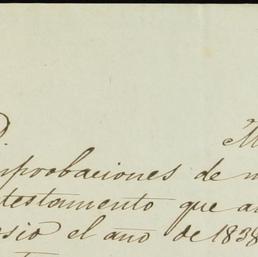 M
mprobaciones de m
testamento que a
sio el ano de 1838